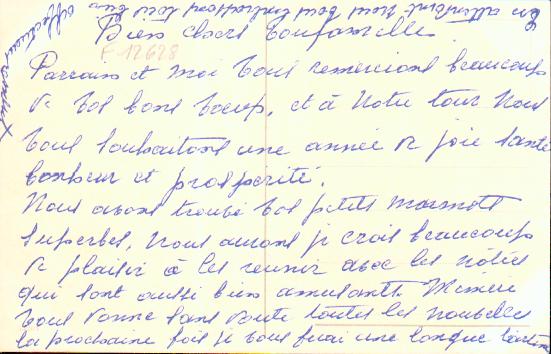 Bien chers
F 12628
Parrain et moi vous remercions beaucoup
de vos bons voeux, et à notre tour nous
vous souhaitons une année de joie santé
bonheur et prospérité.
Nous avons trouvé vos petits marmots
superbes, nous aurons je crois beaucoup
de plaisir à les réunir avec les nôtres
qui sont aussi bien amusants. Mémère
vous donne sans doute toutes les nouvelles
la prochaine fois je vous ferai une longue
En attendant nous vous
affectueusement